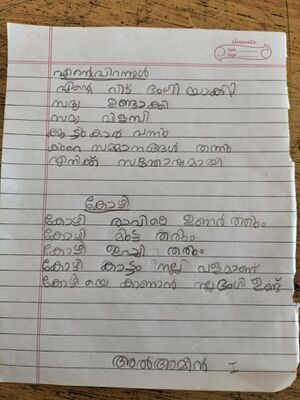 classmate
Date
Page
എൻ്റെ വീട് ഭംഗിയാക്കി
സദ്യ ഉണ്ടാക്കി
സദ്യ വിളമ്പി
കൂട്ടുകാർ വന്നു
കുറെ സമ്മാനങ്ങൾ തന്നു
എനിക്ക് സന്തോഷമായി
കോഴി
കോഴി രാവിലെ ഉണർത്തും
കോഴി മുട്ട തരും
കോഴി ഇറച്ചി തരും
കോഴി കാട്ടം നല്ല വളമാണ്
കോഴിയെ കാണാൻ നല്ല ഭംഗി ഉണ്ട്
അൽഅമീൻ I